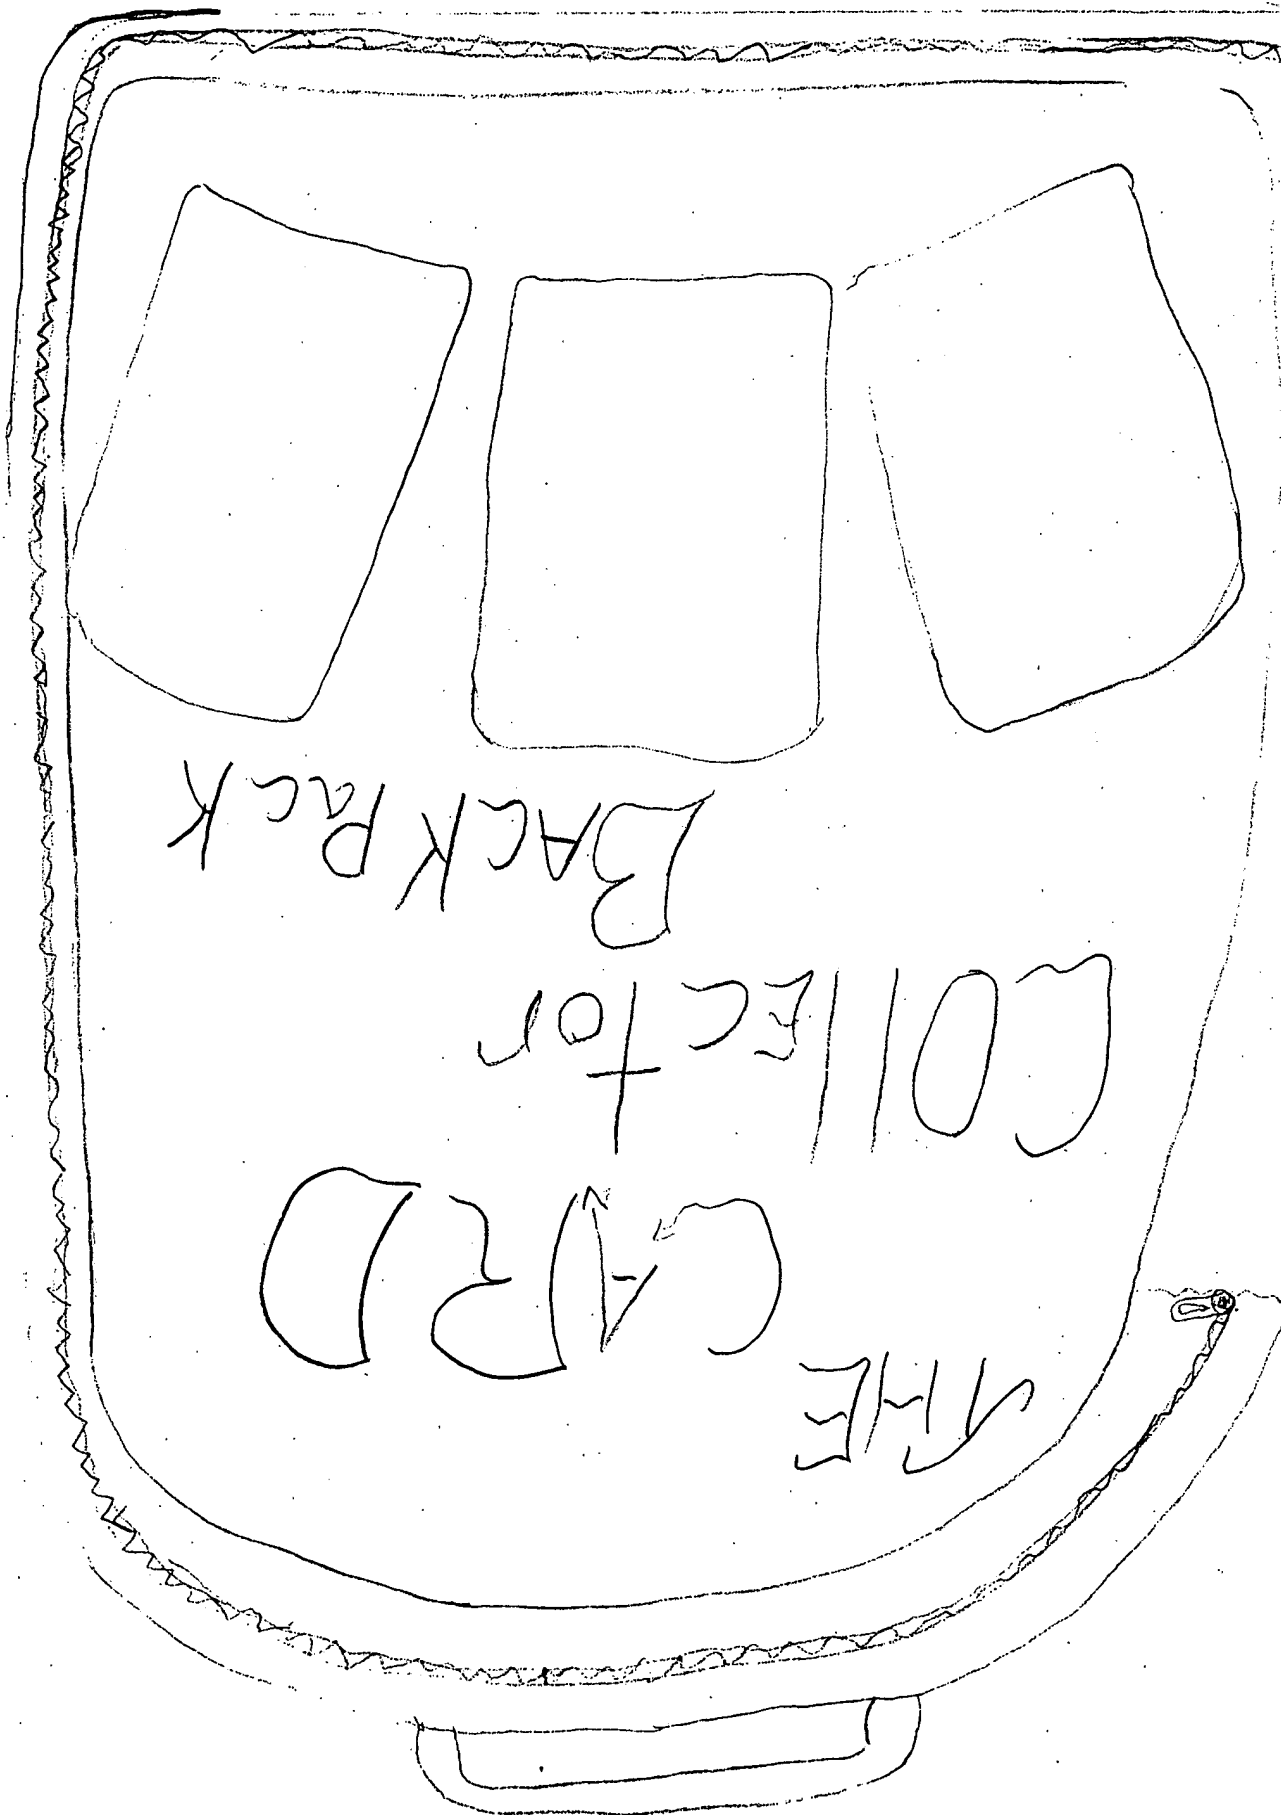 THE
CARD
COllEctor
BACKPacK